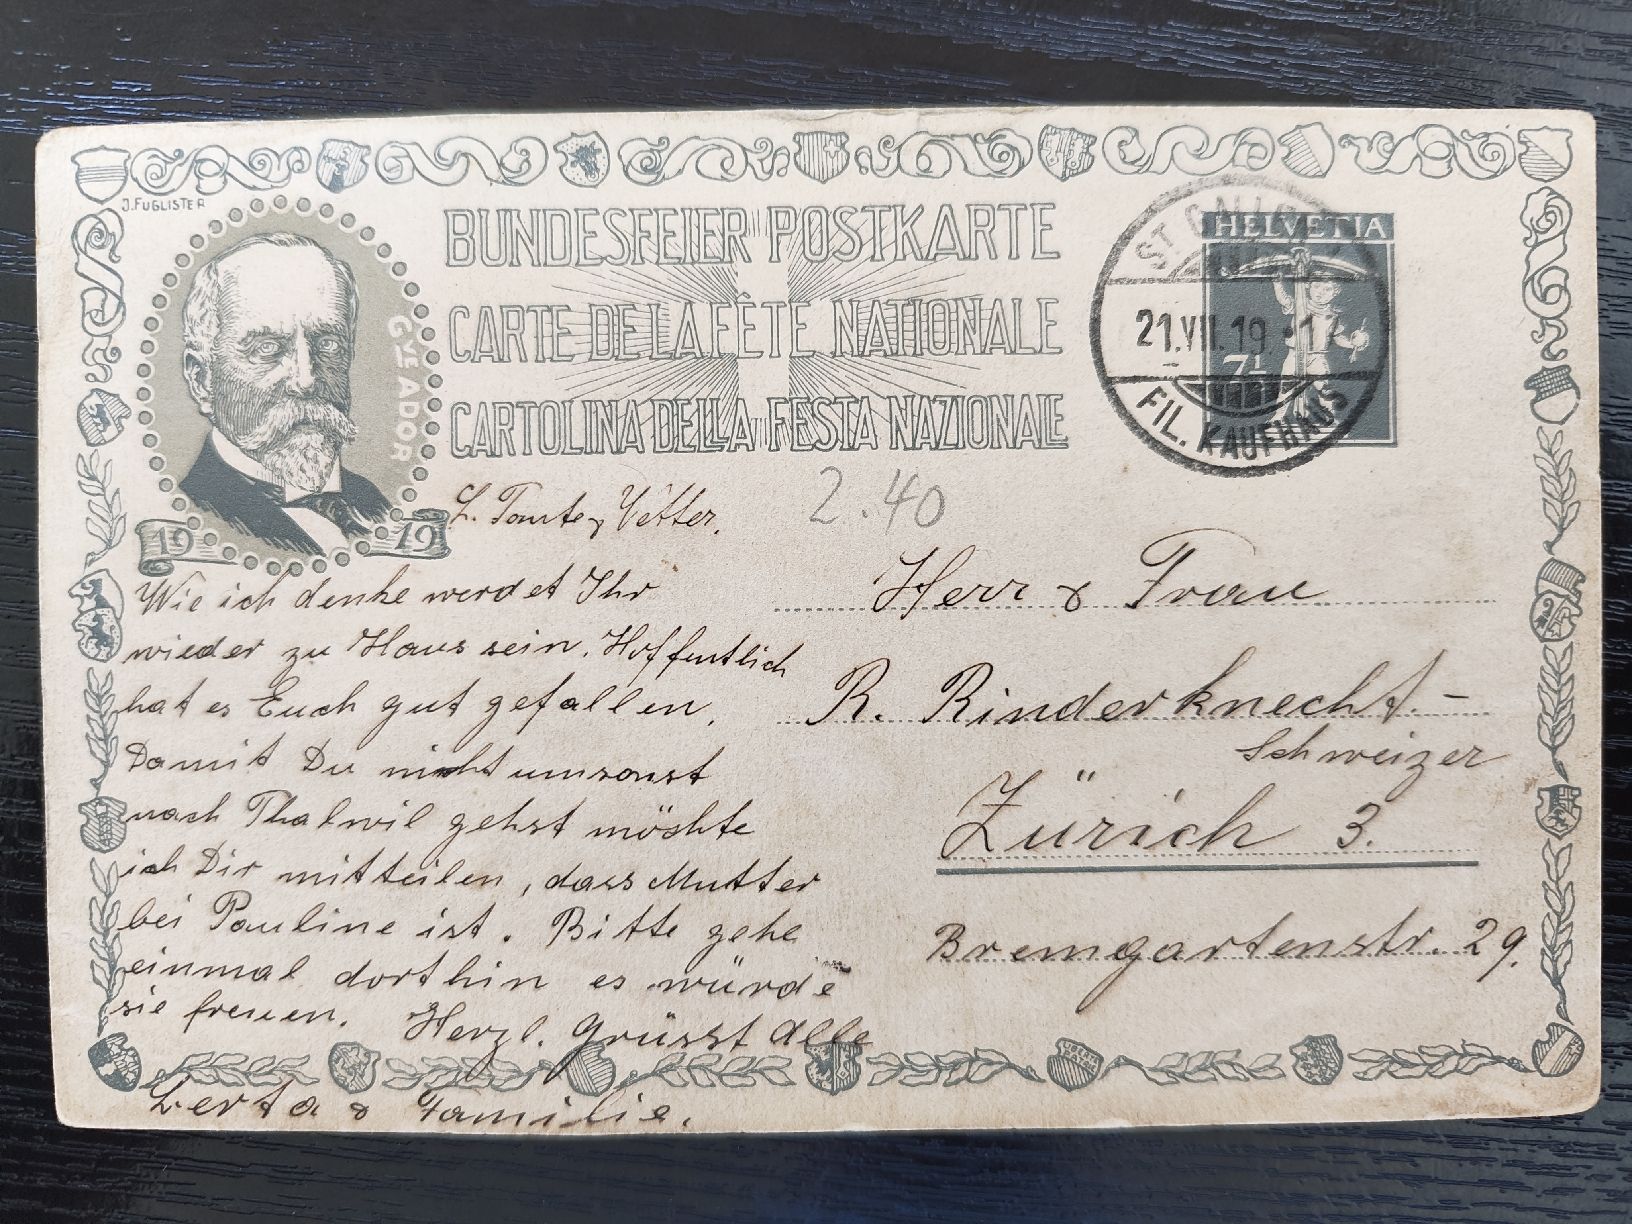 J. FÜGLISTER
BUNDESFEIER POSTKARTE
CARTE DE LA FÊTE NATIONALE
CARTOLINA DELLA FESTA NAZIONALE
GVE ADOR
19 19
HELVETIA
7½
ST. GALLEN
21.VII.19
FIL. KAUFHAUS
2.40
L. Tante & Vetter.
Wie ich denke werdet Ihr
wieder zu Haus sein. Hoffentlich
hat es Euch gut gefallen.
Damit Du nicht umsonst
nach Thalwil gehst möchte
ich Dir mitteilen, dass Mutter
bei Pauline ist. Bitte gehe
einmal dorthin es würde
sie freuen. Herzl. Grüsst Alle
& Familie.
Herr & Frau
R. Rinderknecht.-
Schweizer
Zürich 3.
Bremgartenstr. 29.